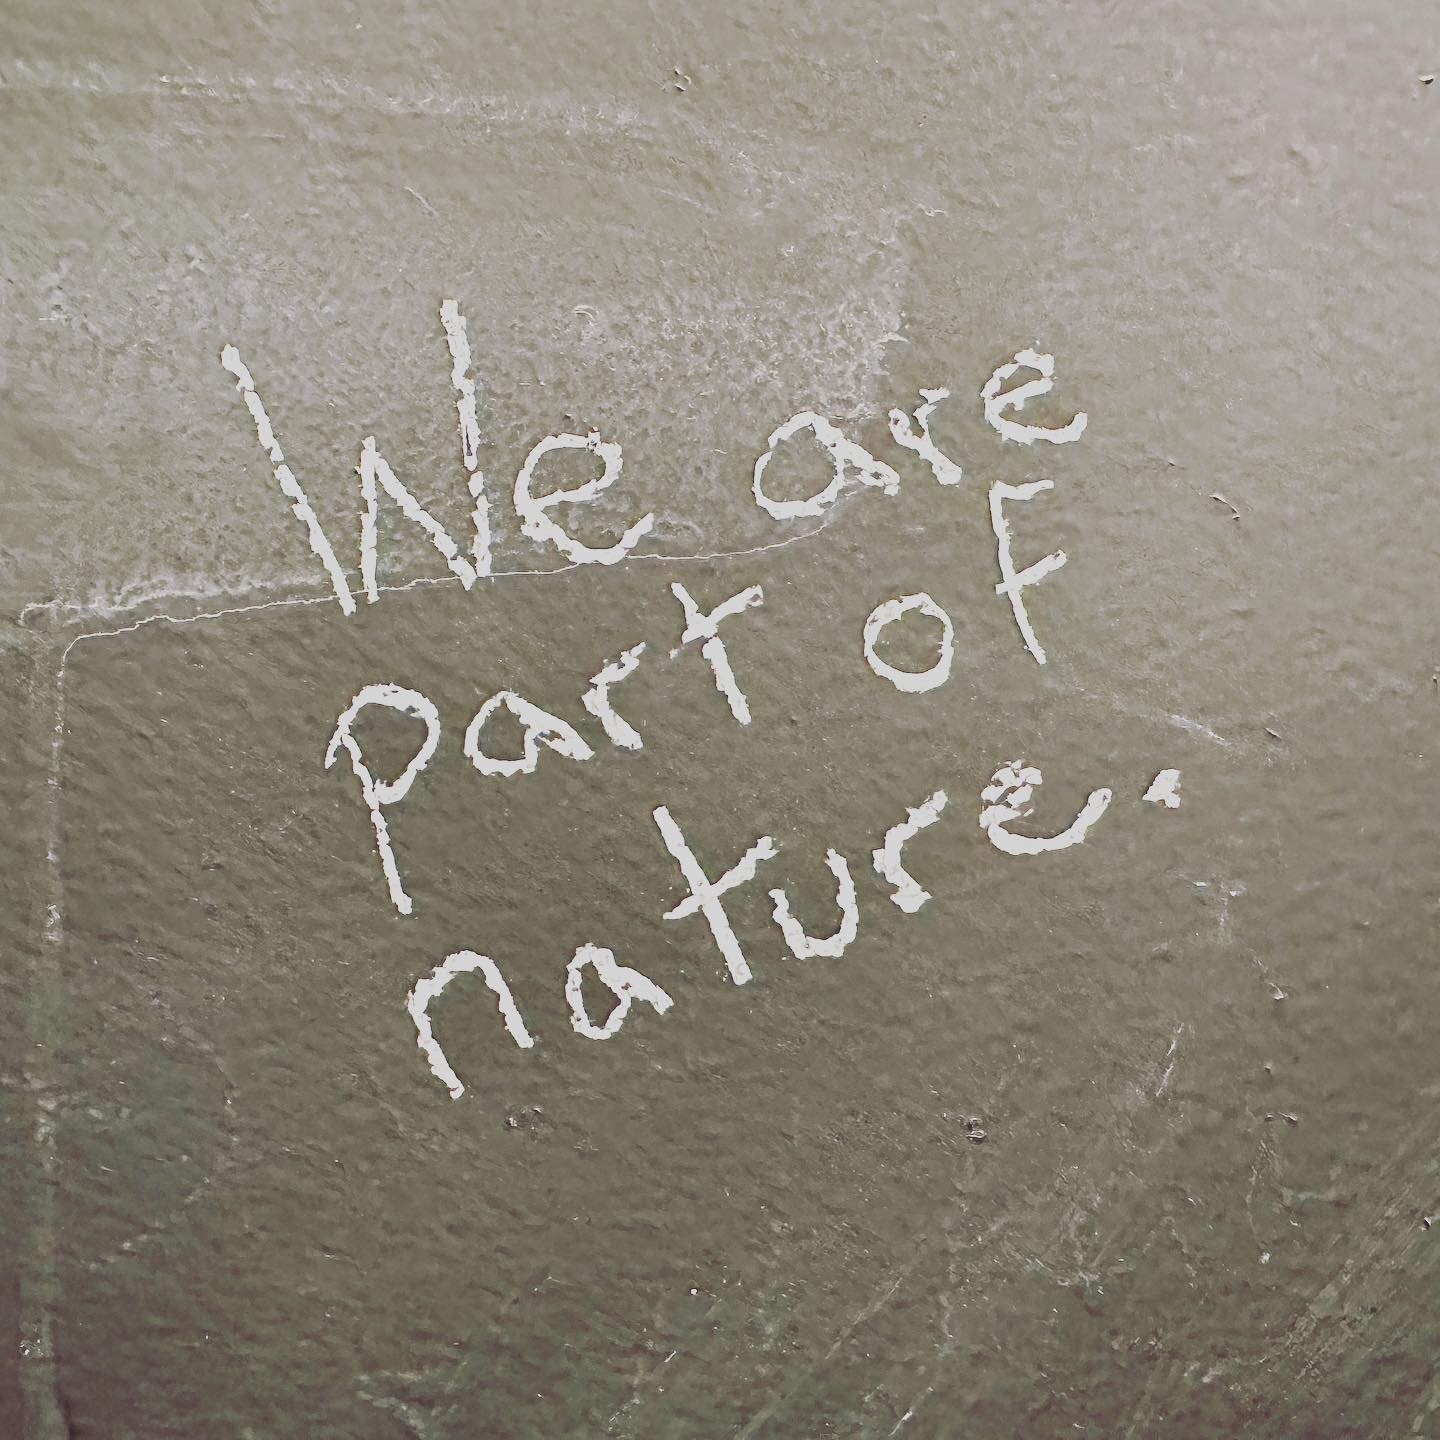 We are
part of
nature.